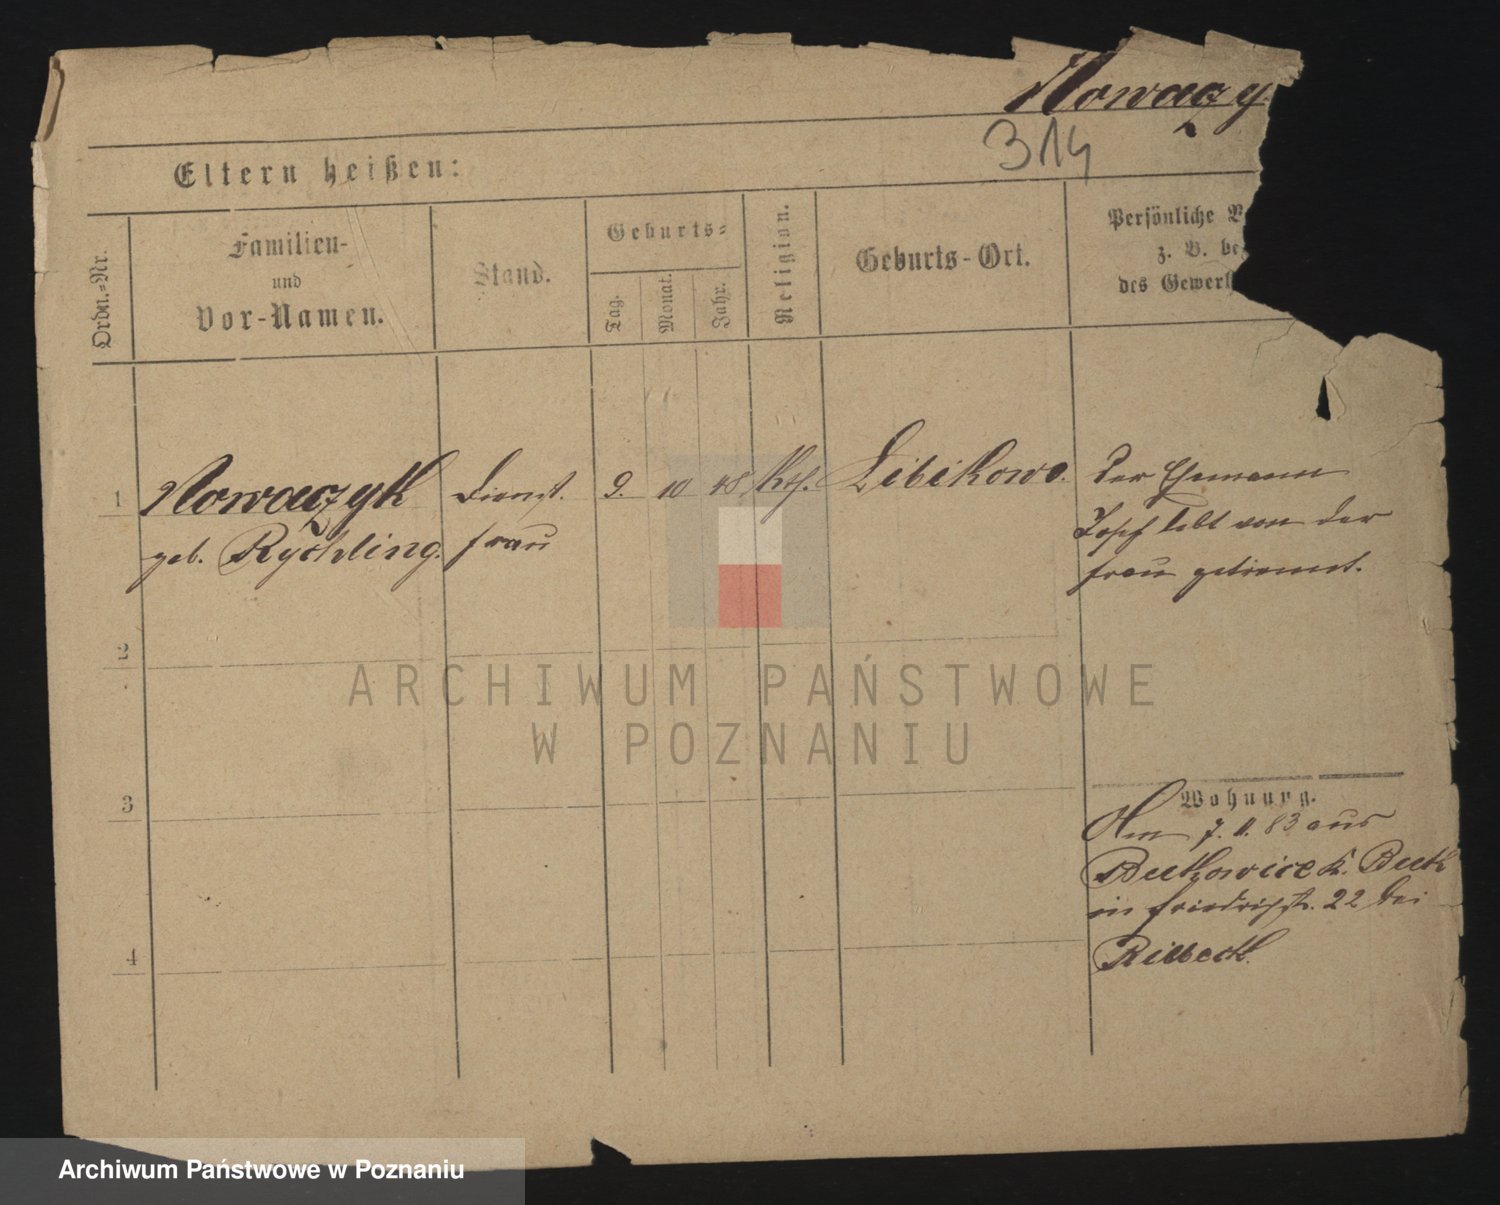 Nowaczy
314
Eltern heißen:
Ordn.-Nr.
Familien-
und
Vor-Namen.
Stand.
Geburts-
Tag.
Monat.
Jahr.
Religion.
Geburts-Ort.
Persönliche V
z. B. be
des Gewerb
1 Nowaczyk Dienst. 9. 10 48 Kth. Libikowo. Der Ehemann
geb. Rychling. frau Josef lebt von der
frau getrennt.
2
ARCHIWUM PAŃSTWOWE
W POZNANIU
3
Wohnung.
Am 7. 11. 83 aus
k. Buk
in Friedrichstr. 22 bei
4
Archiwum Państwowe w Poznaniu